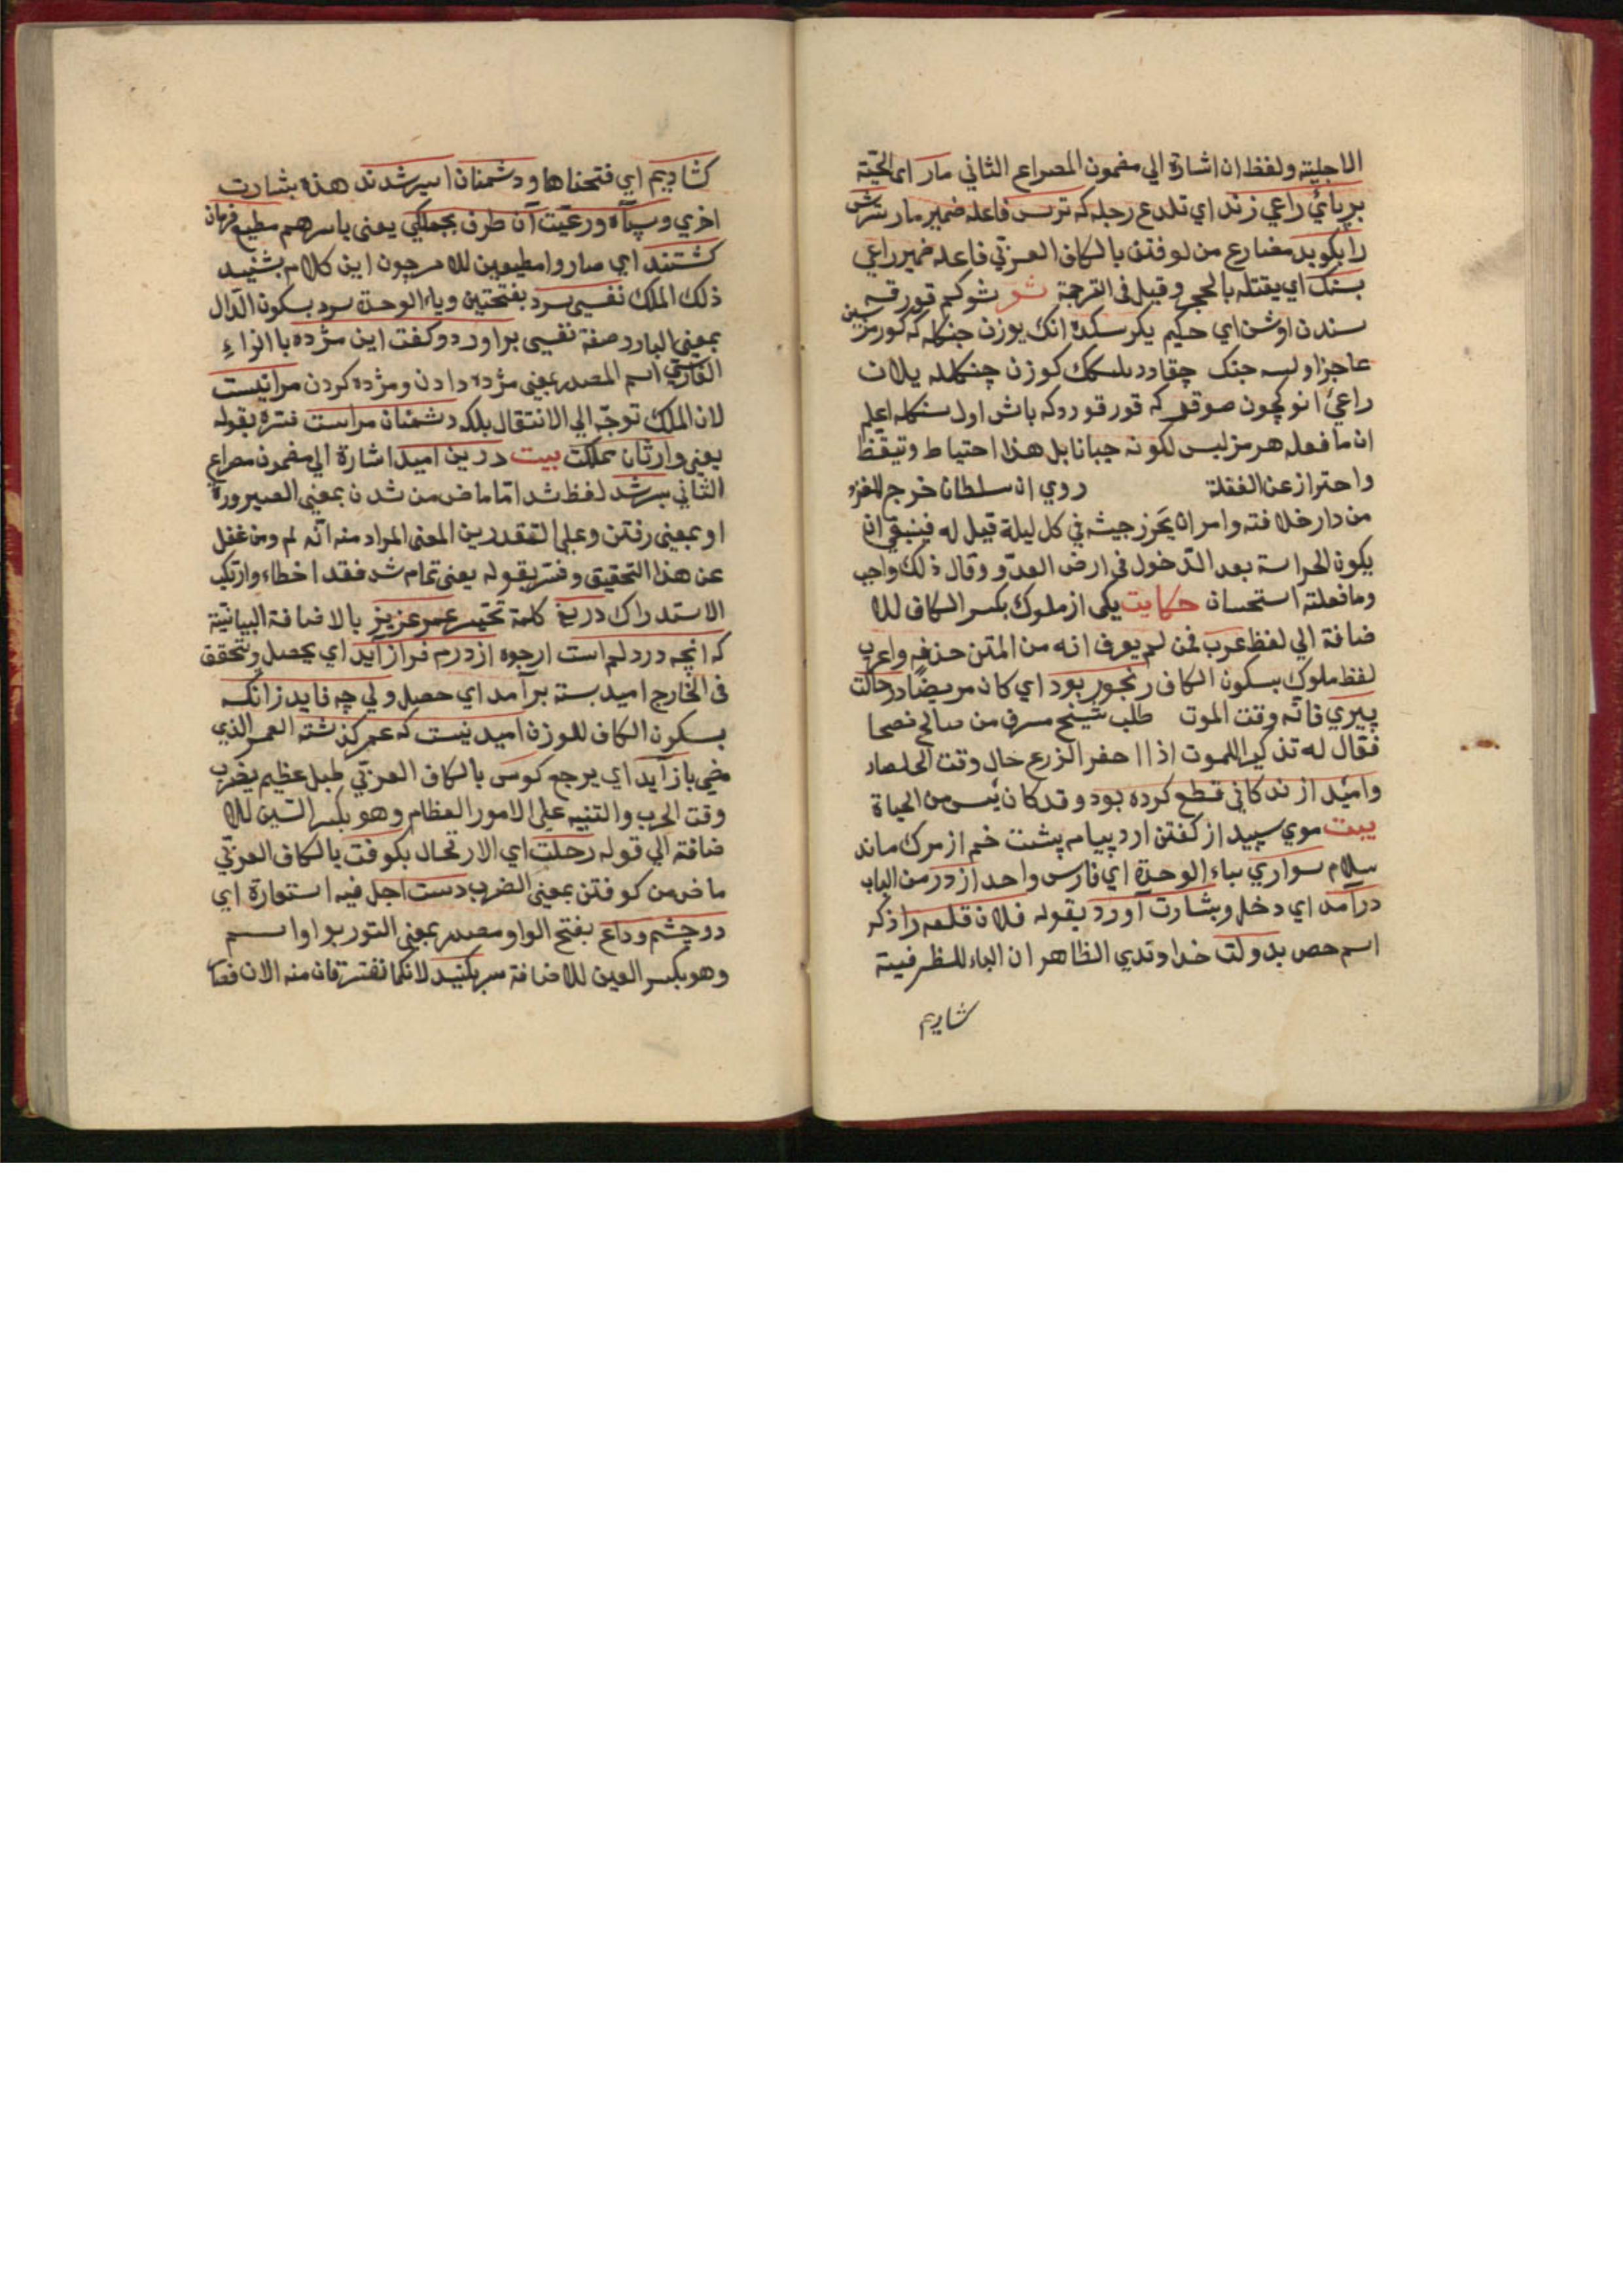 الاجلية ولفظ ان اشارة الي مضمون المصراع الثاني مار اى الحيّة
بر پاىٔ راعي زند اي تلدغ رجله كه ترس فاعله ضمير مار سرش
را بكوبد مضارع من كوفتن بالكاف العربي فاعله ضمير راعي
بسنك اي يقتله بالحجر وقيل فى الترجمة شو شو كم قورقه
سندن اوشن اي حكيم يكرسكده انك يوزن جنكله كه كورمز سين
عاجز اولسه جنك چقادر كوزن چنكلله يلان
راعئ انوكچون صوقر كه قورقوردكه باش اول اعلم
ان ما فعله هرمز ليس لكونه جبانا بل هذا احتياط وتيقظ
واحتراز عن الغفلة روي ان سلطان خرج للغزو
من دار خلافته وامر ان يحرز جيشه في كل ليلة قيل له فينبغي ان
يكون الحراسة بعد الدّخول فى ارض العدوّ وقال ذلك واجب
وما فعلته استحسان حكايت يكى از ملوك بكسر الكاف للا
ضافة الي لفظ عرب فمن لم يعرف انه من المتن حذفه واعرب
لفظ ملوك بسكون الكاف رنجور بود اي كان مريضًا در حالت
پيري فانّه وقت الموت طلب شيخ مسرف من صالح نصحا
فقال له تذكير الموت اذا حفر الزرع حال وقت الحصاد
واميد از زندكاني قطع كرده بود وقد كان يئس من الحياة
بيت موي سپيد از كفتن ارد پيام پشت خم از مرك ماند
سلام سواري بياء الوحدة اي فارس واحد از در من الباب
درآمد اي دخل وبشارت آورد بقوله فلان قلعه را ذكر
اسم حصن بدولت خداوندي الظاهر ان الباء للظرفية
شاديم
كشاديم اي فتحناها ودشمنان اسير شدند هذه بشارت
اخري وسپآه ورعيّت آن طرف بجملكي يعنى باسرهم مطيع فرمان
كشتند اي صاروا مطيعين للامر چون اين كلام بشنيد
ذلك الملك نفسى سرد بفتحتين وياء الوحدة سرد بسكون الدّال
بمعنى البارد صفة نفسى براورد وكفت اين مژده با الزاء
الفارسى اسم المصدر بمعنى مژده دادن ومژده كردن مرا نيست
لان الملك توجّه الي الانتقال بلكه دشمنان مراست فسّره بقوله
يعنى وارثان مملكت بيت درين اميد اشارة الي مضمون مصراع
الثاني بسر شد لفظ شد امّا ماض من شدن بمعنى الصيرورة
او بمعنى رفتن وعلى التقدرين المعنى المراد منه انّه لم ومن غفل
عن هذا التحقيق وفسّر بقوله يعنى تمام شد فقد اخطاء وارتكب
الاستدراك دريغ كلمة تحسّر عمر عزيز بالاضافة البيانية
كه انچه در دلم است ارجوه از درم فراز آيد اي يحصل ويتحقق
فى الخارج اميد بسته برآمد اي حصل ولي چه فايد زانكه
بسكون الكاف للوزن اميد نيست كه عمر كذشته العمر الذي
مضى باز آيد اي يرجع كوس بالكاف العربي طبل عظيم يضرب
وقت الحرب والتنبيه على الامور العظام وهو بكسر السّين للا
ضافة الي قوله رحلت اي الارتحال بكوفت بالكاف العربي
ماض من كوفتن بمعنى الضرب دست اجل فيه استعارة اي
دو چشم وداع بفتح الواو مصدر بمعنى التوريوا واسم
وهو بكسر العين للاضافة سر بكنيد لانكما تفترقان منه الان فعا